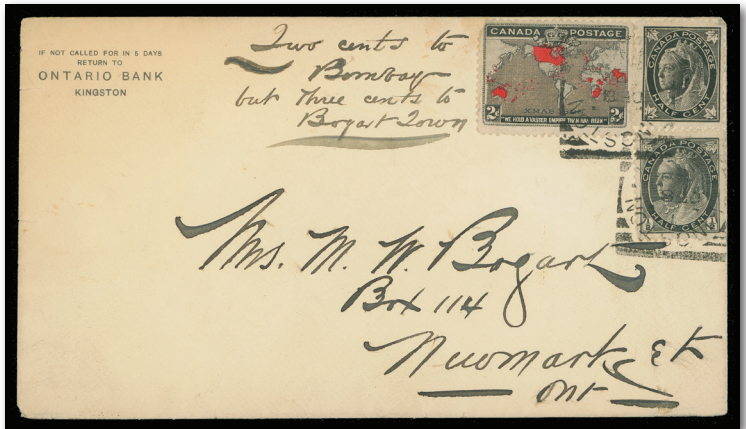 IF NOT CALLED FOR IN 5 DAYS
RETURN TO
ONTARIO BANK
KINGSTON
Two cents to
Bombay
but three cents to
Bogart Town
CANADA POSTAGE
XMAS
2c
2c
"WE HOLD A VASTER EMPIRE THAN HAS BEEN"
CANADA POSTAGE
HALF CENT
CANADA POSTAGE
HALF CENT
Mrs. M. W. Bogart
Box 114
Newmarket
Ont